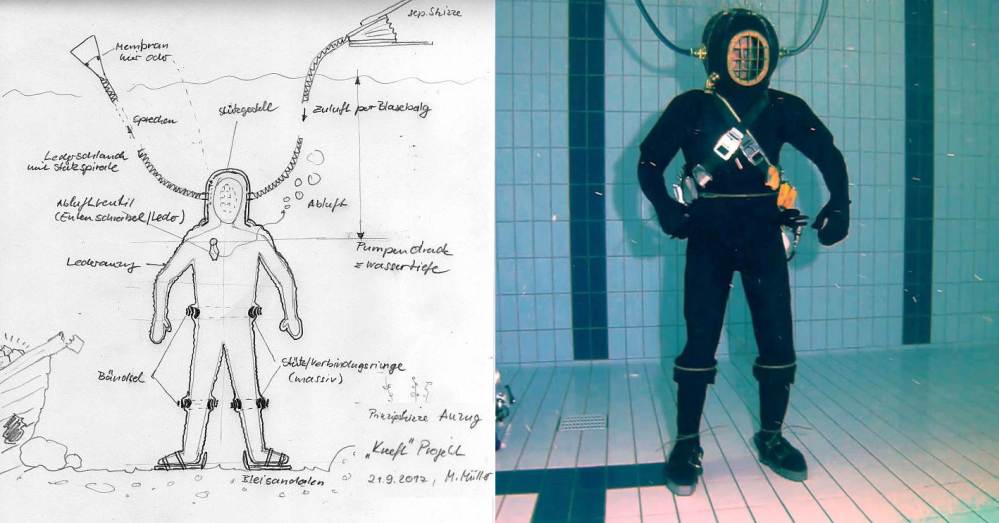 sep. Skizze
Membran
nur oder
sprechen
Stützgestell
Zuluft per Blasebalg
Lederschlauch
mit Stützspirale
Abluftventil
(Entenschnabel/Leder)
Abluft
Lederanzug
Pumpendruck
= Wassertiefe
Bändsel
Stütz/Verbindungsringe
(massiv)
Prinzipskizze Anzug
„Kneft" Projekt
21.9.2017, M. Müller
Bleisandalen